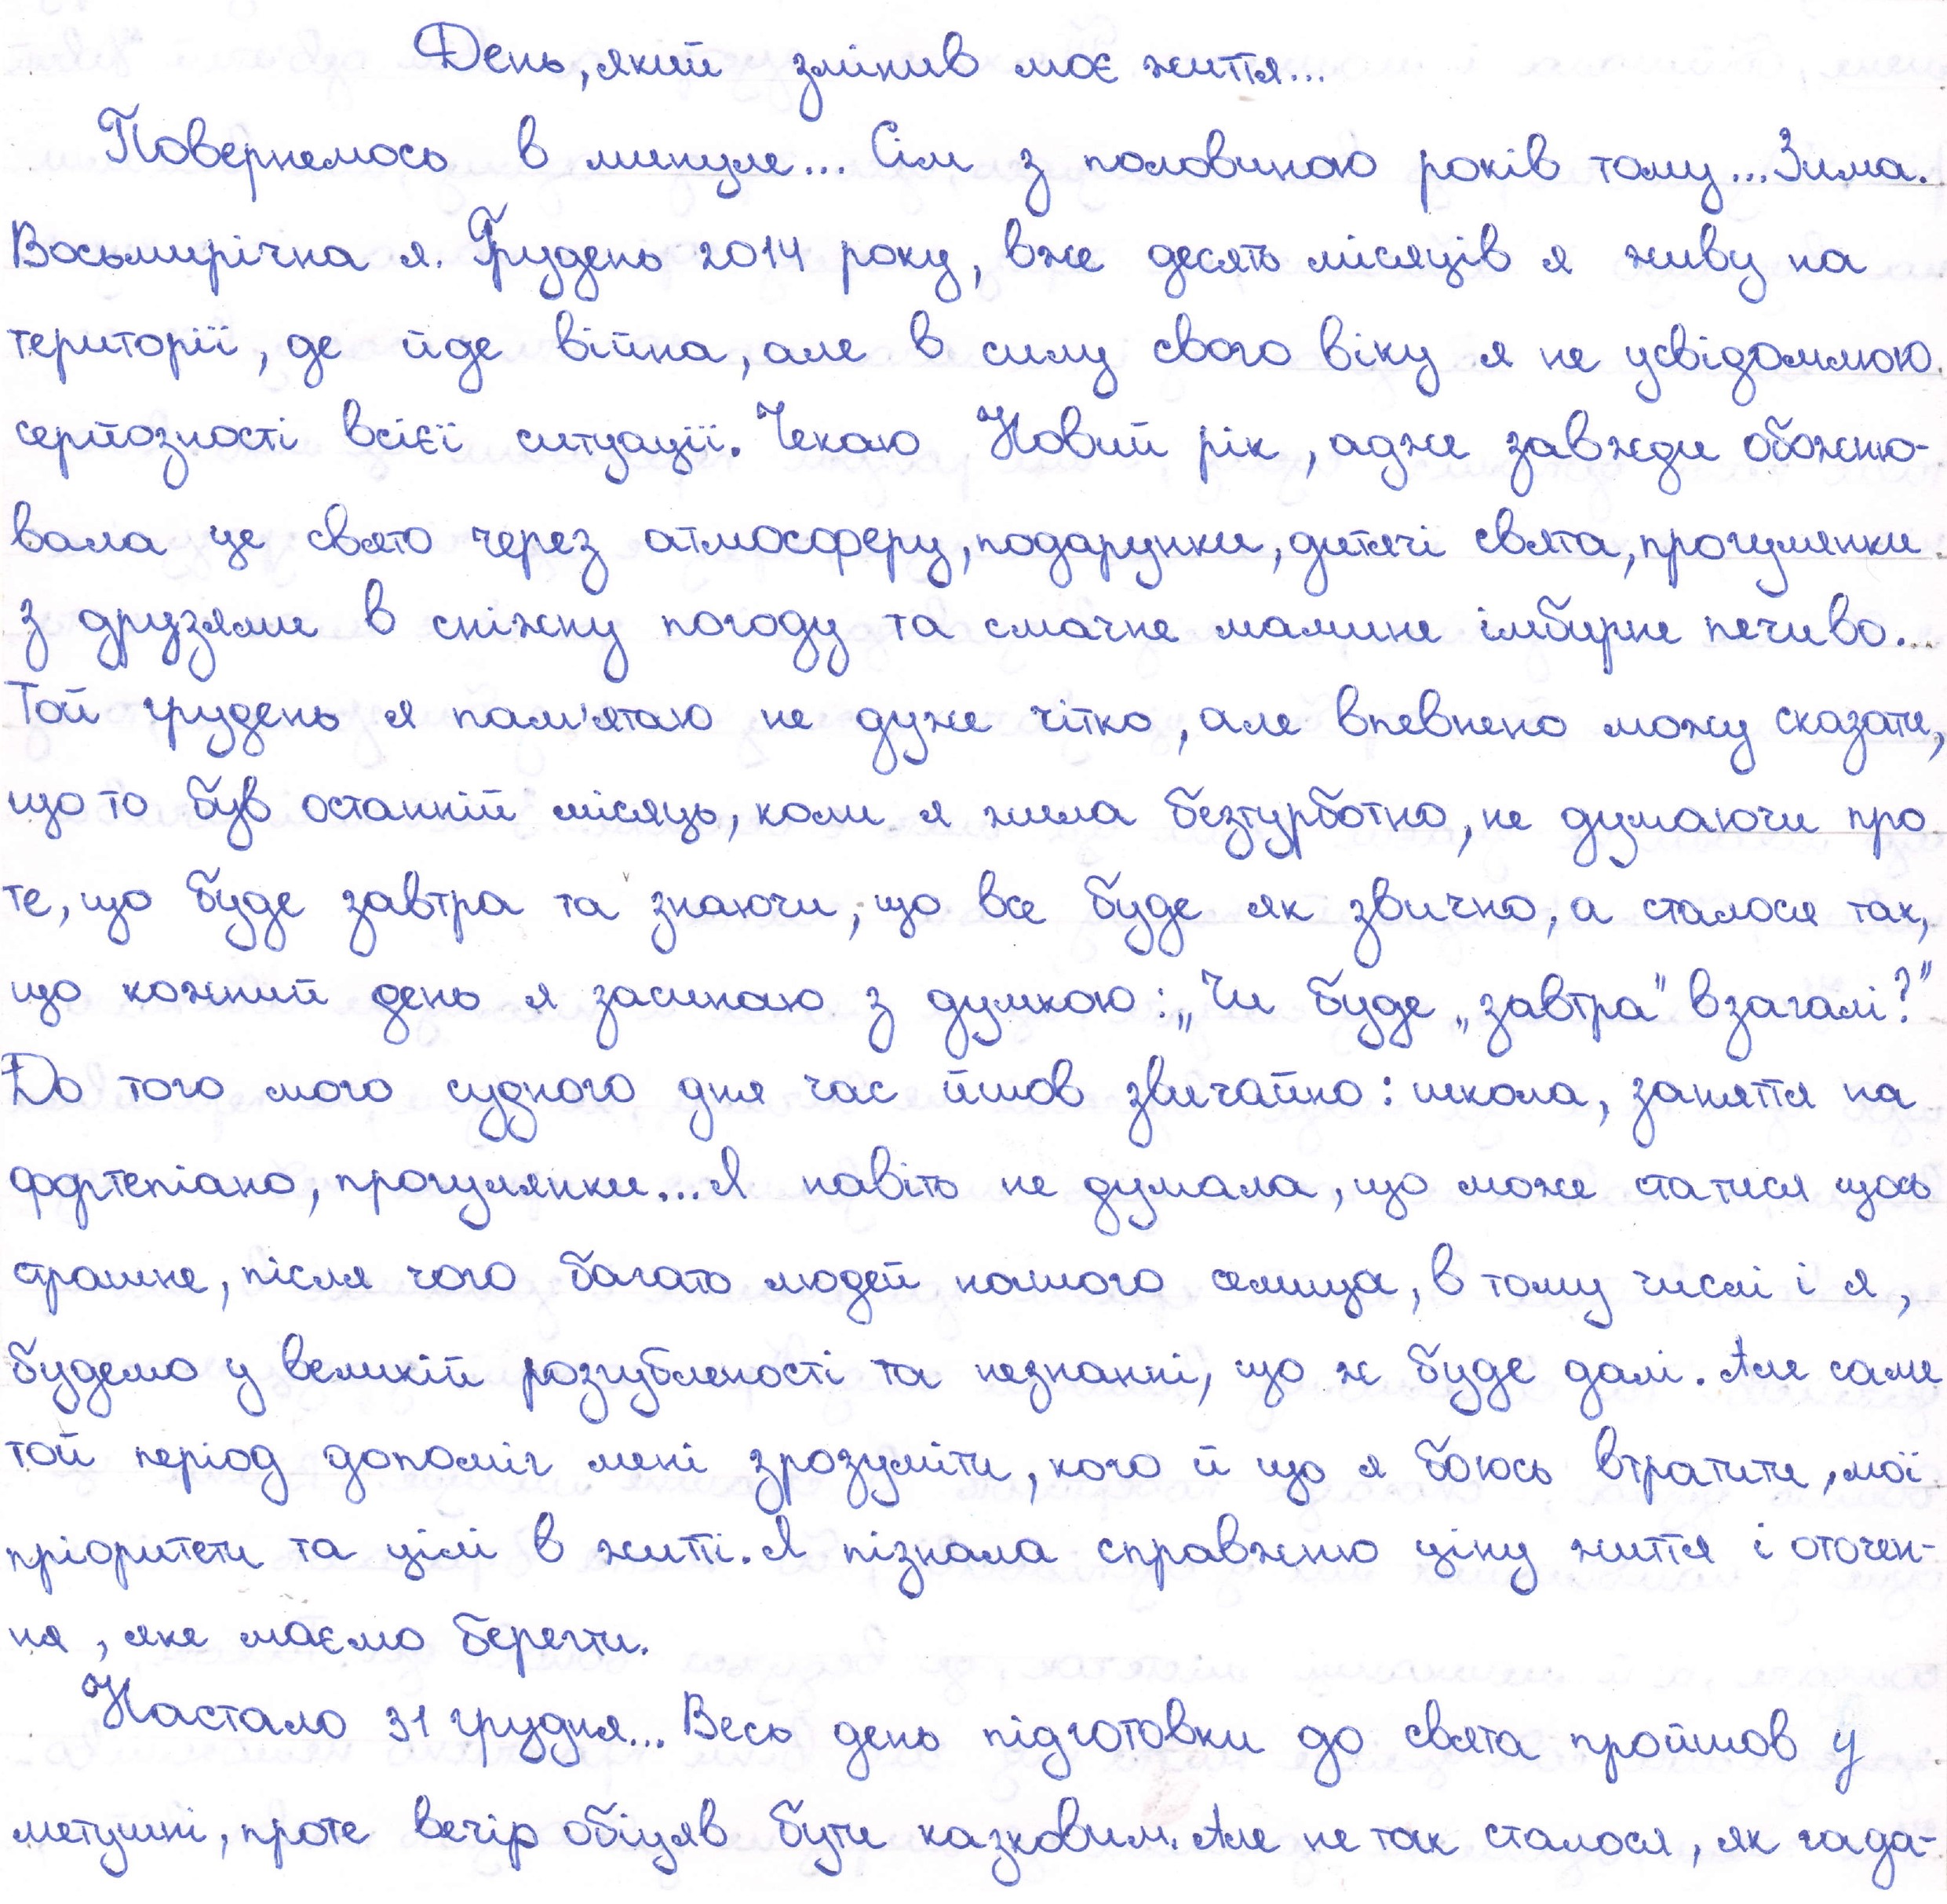 День, який змінив моє життя...
Повернемось в минуле... Сім з половиною років тому... Зима.
Восьмирічна я. Грудень 2014 року, вже десять місяців я живу на
території, де йде війна, але в силу свого віку я не усвідомлюю
серйозності всієї ситуації. Чекаю Новий рік, адже завжди обожню-
вала це свято через атмосферу, подарунки, дитячі свята, прогулянки
з друзями в сніжну погоду та смачне мамине імбирне печиво...
Той грудень я пам'ятаю не дуже чітко, але впевнено можу сказати,
що то був останній місяць, коли я жила безтурботно, не думаючи про
те, що буде завтра та знаючи, що все буде як звично, а сталося так,
що кожний день я засинаю з думкою: „Чи буде „завтра" взагалі?"
До того мого судного дня час йшов звичайно: школа, заняття на
фортепіано, прогулянки... Я навіть не думала, що може статися щось
страшне, після чого багато людей нашого селища, в тому числі і я,
будемо у великій розгубленості та незнанні, що ж буде далі. Але саме
той період допоміг мені зрозуміти, кого й що я боюсь втратити, мої
пріоритети та цілі в житті. Я пізнала справжню ціну життя і оточен-
ня, яке маємо берегти.
Настало 31 грудня... Весь день підготовки до свята пройшов у
метушні, проте вечір обіцяв бути казковим. Але не так сталося, як гада-